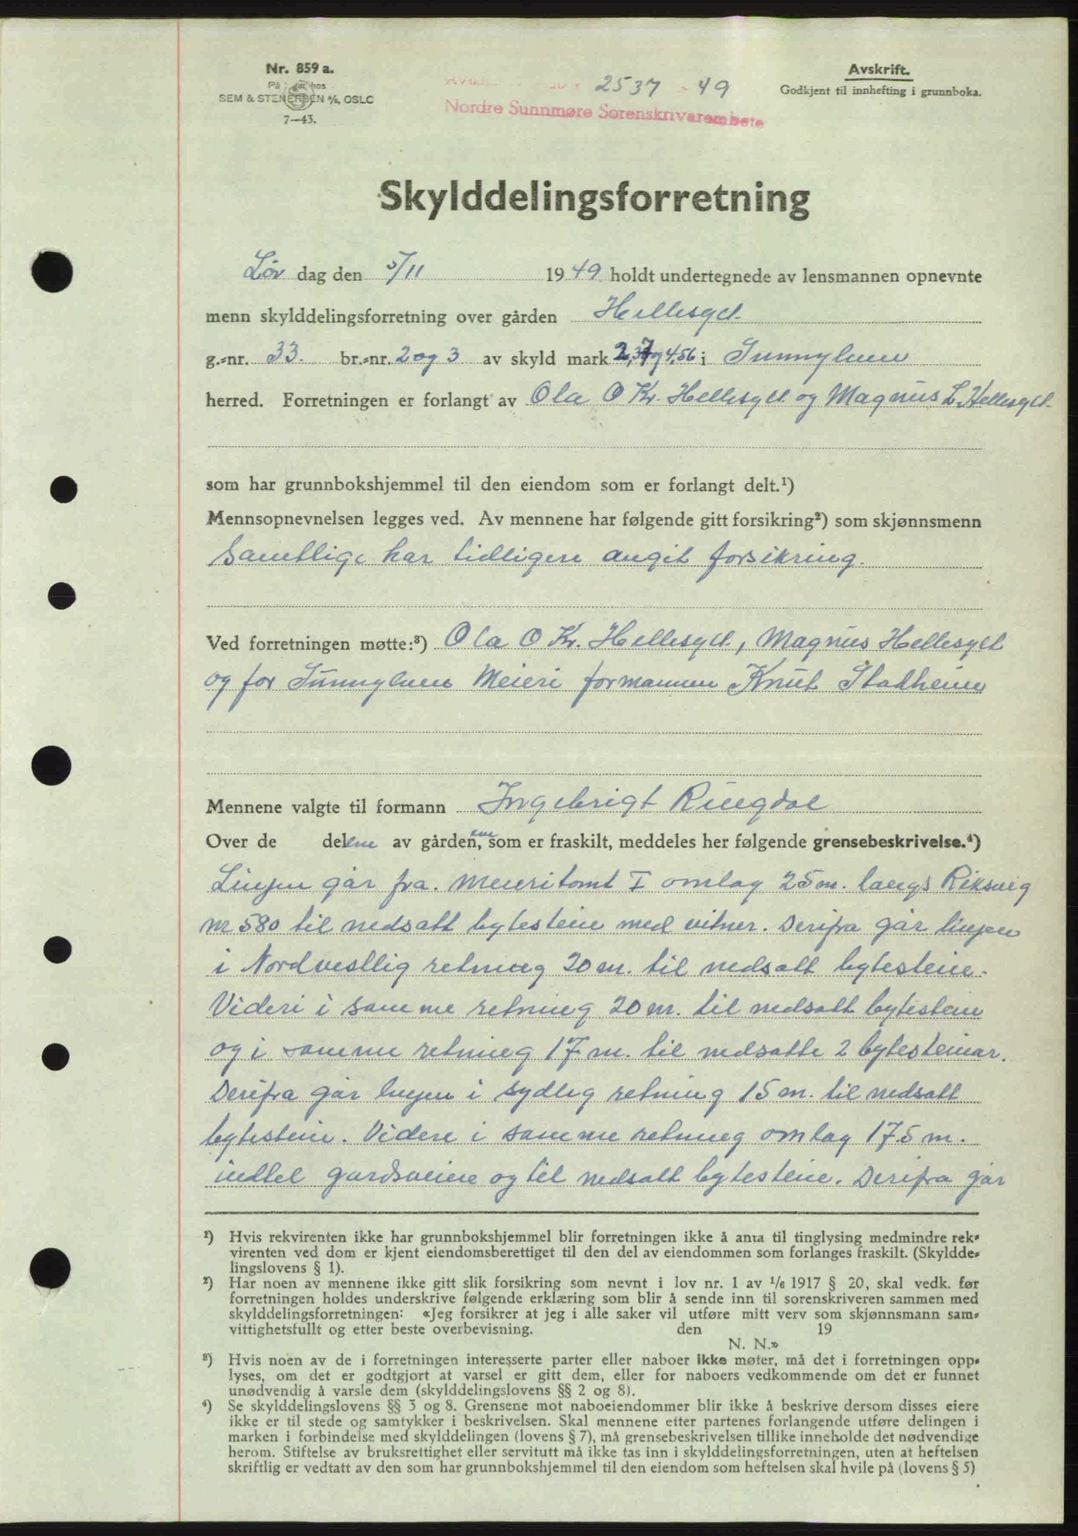 Nr. 859 a.
SEM & STENERSEN A/S, OSLO
7—43.
2537 - 49
Nordre Sunnmøre Sorenskrivarembete
Avskrift.
Godkjent til innhefting i grunnboka.
Skylddelingsforretning
Lør dag den 5/11 1949 holdt undertegnede av lensmannen opnevnte
menn skylddelingsforretning over gården Hellesylt
g.-nr. 33. br.-nr. 2 og 3 av skyld mark 2,37 og 4,56 i Sunnylven
herred. Forretningen er forlangt av Ola O Kr. Hellesylt og Magnus L. Hellesylt
som har grunnbokshjemmel til den eiendom som er forlangt delt.¹)
Mennsopnevnelsen legges ved. Av mennene har følgende gitt forsikring²) som skjønnsmenn
Samtlige har tidligere angit forsikring.
Ved forretningen møtte:³) Ola O Kr. Hellesylt, Magnus Hellesylt
og for Sunnylven Meieri formannen Knut Stadheim
Mennene valgte til formann Ingebrigt Ringdal
Over de delene av gårdenene, som er fraskilt, meddeles her følgende grensebeskrivelse.⁴)
Linjen går fra. Meieritomt I omlag 25 m. langs Riksveig
nr 580 til nedsatt bytestein med vitner. Derifra går linjen
i Nordvestlig retning 20 m. til nedsatt bytestein.
Videri i samme retning 20 m. til nedsatt bytestein
og i samme retning 17 m. til nedsatte 2 bytesteinar.
Derifra går linjen i sydlig retning 15 m. til nedsatt
bytestein. Videre i samme retning omlag 17,5 m.
indtil gardsveien og til nedsatt bytestein. Derifra går
¹) Hvis rekvirenten ikke har grunnbokshjemmel blir forretningen ikke å anta til tinglysing medmindre rek-
virenten ved dom er kjent eiendomsberettiget til den del av eiendommen som forlanges fraskilt. (Skyldde-
lingslovens § 1).
²) Har noen av mennene ikke gitt slik forsikring som nevnt i lov nr. 1 av 1/6 1917 § 20, skal vedk. før
forretningen holdes underskrive følgende erklæring som blir å sende inn til sorenskriveren sammen med
skylddelingsforretningen: «Jeg forsikrer at jeg i alle saker vil utføre mitt verv som skjønnsmann sam-
vittighetsfullt og etter beste overbevisning. den 19
N. N.»
³) Hvis noen av de i forretningen interesserte parter eller naboer ikke møter, må det i forretningen opp-
lyses, om det er godtgjort at varsel er gitt dem, eller for naboers vedkommende om det er funnet
unødvendig å varsle dem (skylddelingslovens §§ 2 og 8).
⁴) Se skylddelingslovens §§ 3 og 8. Grensene mot naboeiendommer blir ikke å beskrive dersom disses eiere
ikke er til stede og samtykker i beskrivelsen. Skal mennene etter partenes forlangende utføre delingen i
marken i forbindelse med skylddelingen (lovens § 7), må grensebeskrivelsen tillike inneholde det nødvendige
herom. Stiftelse av bruksrettighet eller servitutt må ikke tas inn i skylddelingsforretningen, uten at heftelsen
skriftlig er vedtatt av den som har grunnbokshjemmel til den eiendom som heftelsen skal hvile på (lovens § 5)